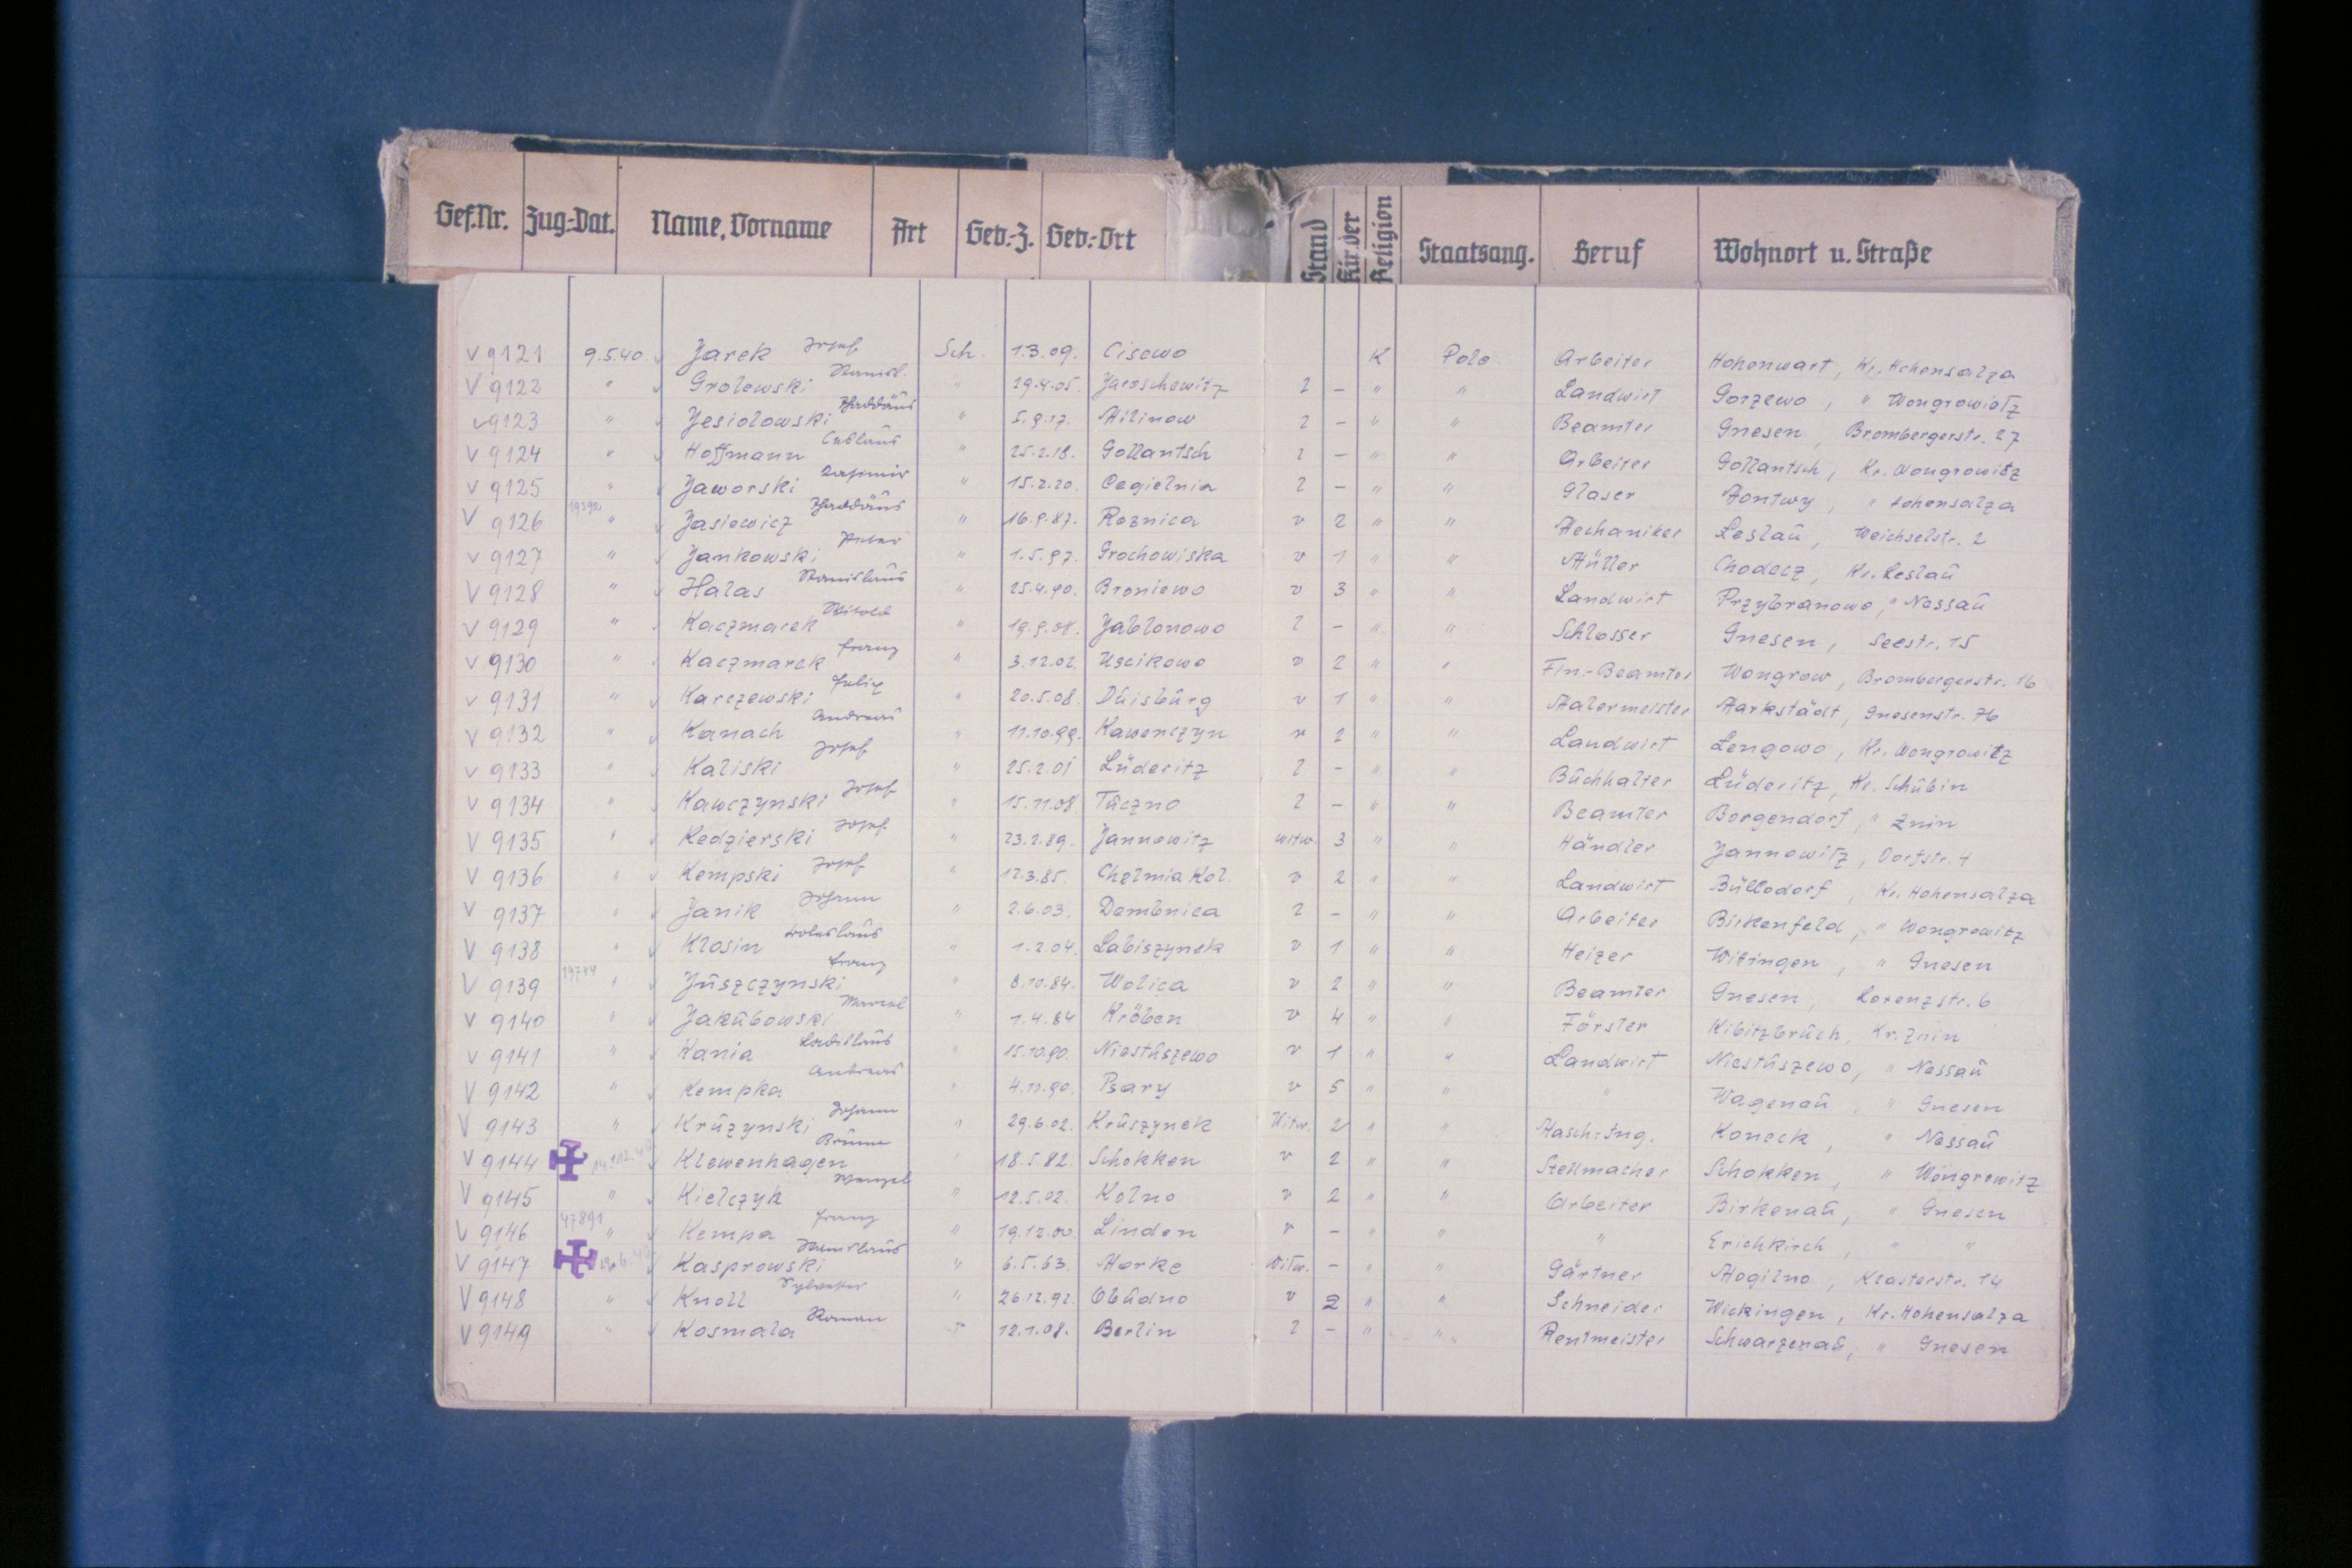 Gef.Nr. Zug.-Dat. Name, Vorname Art Geb.-Z. Geb.-Ort Stand Kinder Religion Staatsang. Beruf Wohnort u. Straße
V 9121 9.5.40. Jarek Josef Sch. 1.3.09. Cisewo K Pole Arbeiter Hohenwart, Kr. Hohensalza
V 9122 " Grolewski Stanisl. " 29.4.05. Jaroschewitz l – " " Landwirt Gorzewo, " Wongrowietz
V 9123 " Jesiolowski Thaddäus " 5.9.17. Milinow l – " " Beamter Gnesen, Brombergerstr. 27
V 9124 " Hoffmann Ceslaus " 25.2.18. Gollantsch l – " " Arbeiter Gollantsch, Kr. Wongrowitz
V 9125 " Jaworski Kasimir " 15.2.20. Cegielnia l – " " Glaser Montwy, " Hohensalza
V 9126 " Jasiewicz Thaddäus " 16.9.87. Roznica v 2 " " Mechaniker Leslau, Weichselstr. 2
V 9127 " Jankowski " 1.5.97. Grochowiska v 1 " " Müller Chodecz, Kr. Leslau
V 9128 " Halas Stanislaus " 25.4.90. Broniewo v 3 " " Landwirt Przybranowo, " Nessau
V 9129 " Kaczmarek Witold " 19.9.08. Jablonowo l – " " Schlosser Gnesen, Seestr. 15
V 9130 " Kaczmarek Franz " 3.12.02. Uscikowo v 2 " " Fin.-Beamter Wongrow, Brombergerstr. 16
V 9131 " Karczewski Felix " 20.5.08. Duisburg v 1 " " Malermeister Markstädt, Gnesenstr. 76
V 9132 " Kanach Andreas " 11.10.99. Kawenczyn v 2 " " Landwirt Lengowo, Kr. Wongrowitz
V 9133 " Kaliski Josef " 25.2.01 Lüderitz l – " " Buchhalter Lüderitz, Kr. Schubin
V 9134 " Kawczynski Josef " 15.11.08 Tuczno l – " " Beamter Borgendorf, " Znin
V 9135 " Kedzierski Josef " 23.2.89. Jannowitz witw. 3 " " Händler Jannowitz, Dorfstr. 4
V 9136 " Kempski Josef " 12.3.85. Chelmia Kol. v 2 " " Landwirt Büllodorf, Kr. Hohensalza
V 9137 " Janik Johann " 2.6.03. Dembnica l – " " Arbeiter Birkenfeld, " Wongrowitz
V 9138 " Klosin Boleslaus " 1.2.04. Labiszynek v 1 " " Heizer Witingen, " Gnesen
V 9139 19744 " Juszczynski Franz " 8.10.84. Wolica v 2 " " Beamter Gnesen, Lorenzstr. 6
V 9140 " Jakubowski Marcel " 1.4.84 Kröben v 4 " " Förster Kibitzbruch, Kr. Znin
V 9141 " Kania Ladislaus " 15.10.90. Niestuszewo v 1 " " Landwirt Niestuszewo, " Nessau
V 9142 " Kempka Andreas " 4.11.90. Psary v 5 " " " Wagenau, " Gnesen
V 9143 " Kruzynski Johann " 29.6.02. Kruszynek Witw. 2 " " Masch.-Ing. Koneck, " Nessau
V 9144 Klewenhagen Bruno " 18.5.82. Schokken v 2 " " Stellmacher Schokken, " Wongrowitz
V 9145 " Kielczyk Wenzel " 12.5.02. Kolno v 2 " " Arbeiter Birkenau, " Gnesen
V 9146 47891 " Kempa Franz " 19.12.00. Linden v – " " " Erichkirch, " "
V 9147 Kasprowski Stanislaus " 6.5.63. Marke Witw. – " " Gärtner Mogilno, Klosterstr. 14
V 9148 " Knoll Sylvester " 26.12.92. Obudno v 2 " " Schneider Wickingen, Kr. Hohensalza
V 9149 " Kosmala Roman " 12.1.08. Berlin l – " " Rentmeister Schwarzenau, " Gnesen